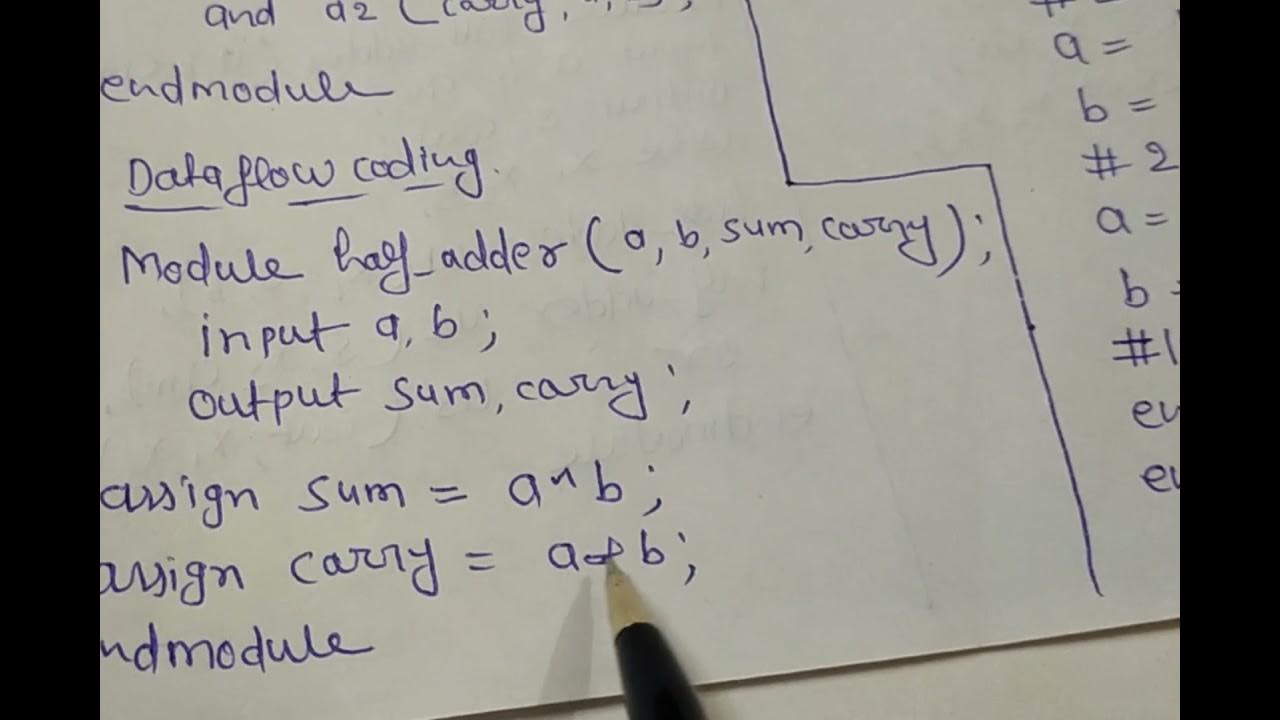 and a2 (carry,
endmodule
Dataflow coding.
Module half_adder (a, b, sum, carry);
input a, b;
output sum, carry;
assign sum = a^b;
assign carry = a&b;
ndmodule
a =
b =
# 2
a =
b
#1